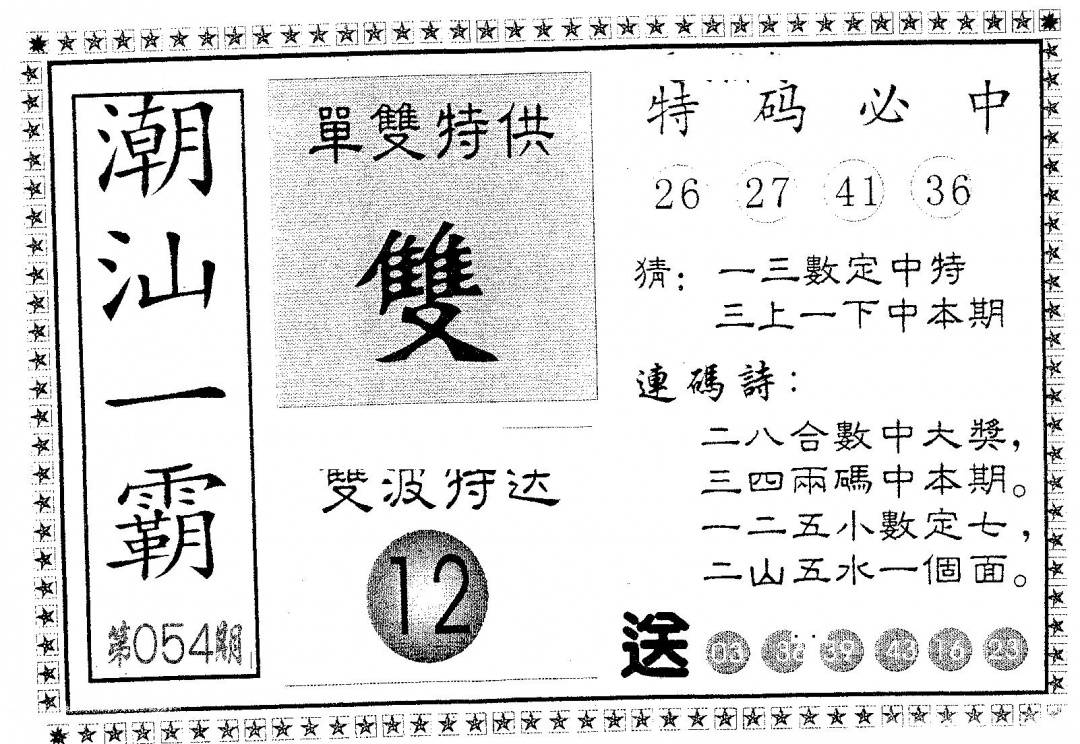 潮汕一霸
第054期
單雙特供
雙
雙波特达
12
特码必中
26 27 41 36
猜：一三數定中特
三上一下中本期
連碼詩：
二八合數中大獎，
三四兩碼中本期。
一二五小數定七，
二山五水一個面。
送 03 39 43 16 23